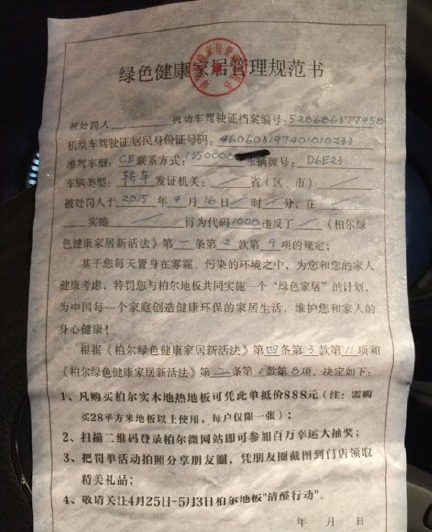 绿色健康家居管理规范书
被处罚人 机动车驾驶证档案编号:528686377458
机动车驾驶证/居民身份证号码:460603197401010233
准驾车型:CE联系方式:1350000 车辆牌号:D6E23
车辆类型:轿车 发证机关: 省(区、市)
被处罚人于2015年4月16日 时 分,在
实施 行为代码1008违反了 《柏尔绿
色健康家居新活法》第一条第2款第9项的规定;
基于您每天置身在雾霾、污染的环境之中,为您和您的家人
健康考虑,特罚您与柏尔地板共同实施一个“绿色家居”的计划,
为中国每一个家庭创造健康环保的家居生活,维护您和家人的
身心健康!
根据《柏尔绿色健康家居新活法》第四条第3款第11项和
《柏尔绿色健康家居新活法》第二条第1款第8项,决定如下:
1、凡购买柏尔实木地热地板可凭此单抵价888元(注:需购
买28平方米地板以上使用,每户仅限一张);
2、扫描二维码登录柏尔微网站即可参加百万幸运大抽奖;
3、把罚单活动拍照分享朋友圈,凭朋友圈截图到门店领取
精美礼品;
4、敬请关注4月25日~5月3日柏尔地板"清醛行动"。
年 月 日